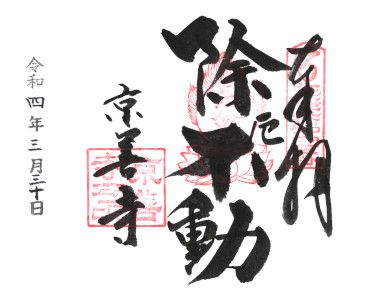 奉拝
除厄不動
京善寺
令和四年三月三十日